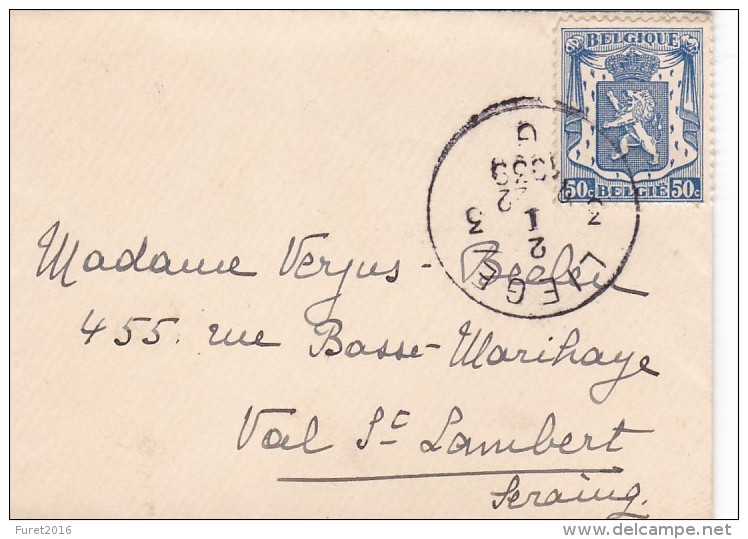 BELGIQUE
50c BELGIË 50c
LIEGE 3
1939
G
Madame Verjus - Beelen
455. rue Basse-Marihaye
Val St Lambert
Seraing.
Furet2016
delcampe.net